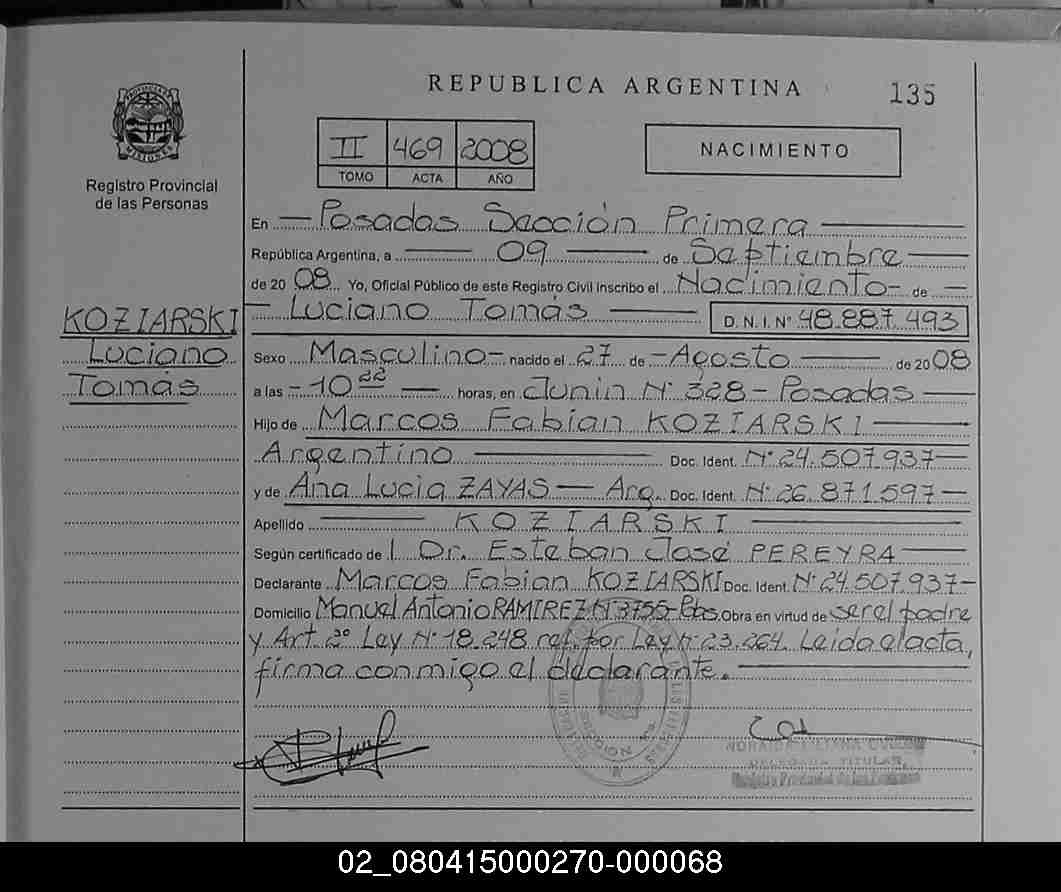 REPUBLICA ARGENTINA
135
PROVINCIA DE
MISIONES
Registro Provincial
de las Personas
II 469 2008
TOMO ACTA AÑO
NACIMIENTO
En — Posadas Sección Primera —
República Argentina, a — 09 — de Septiembre —
de 20 08 Yo, Oficial Público de este Registro Civil inscribo el Nacimiento - de —
— Luciano Tomás — D. N. I. Nº 48.887.493
KOZIARSKI
Luciano
Tomás
Sexo Masculino - nacido el 27 de - Agosto — de 20 08
a las - 10 22 — horas, en Junin Nº 328 - Posadas —
Hijo de Marcos Fabian KOZIARSKI —
Argentino — Doc. Ident. Nº 24.507.937 —
y de Ana Lucia ZAYAS — Arg. Doc. Ident. Nº 26.871.597 —
Apellido — KOZIARSKI —
Según certificado de Dr. Esteban José PEREYRA —
Declarante Marcos Fabian KOZIARSKI Doc. Ident. Nº 24.507.937 -
Domicilio Manuel Antonio RAMIREZ Nº 3755 - Pdas. Obra en virtud de ser el padre
y Art. 2º Ley Nº 18.248 ref. por Ley Nº 23.264. Leida el acta,
firma conmigo el declarante. —
DELEGADA TITULAR
Registro Provincial de las Personas
02_080415000270-000068